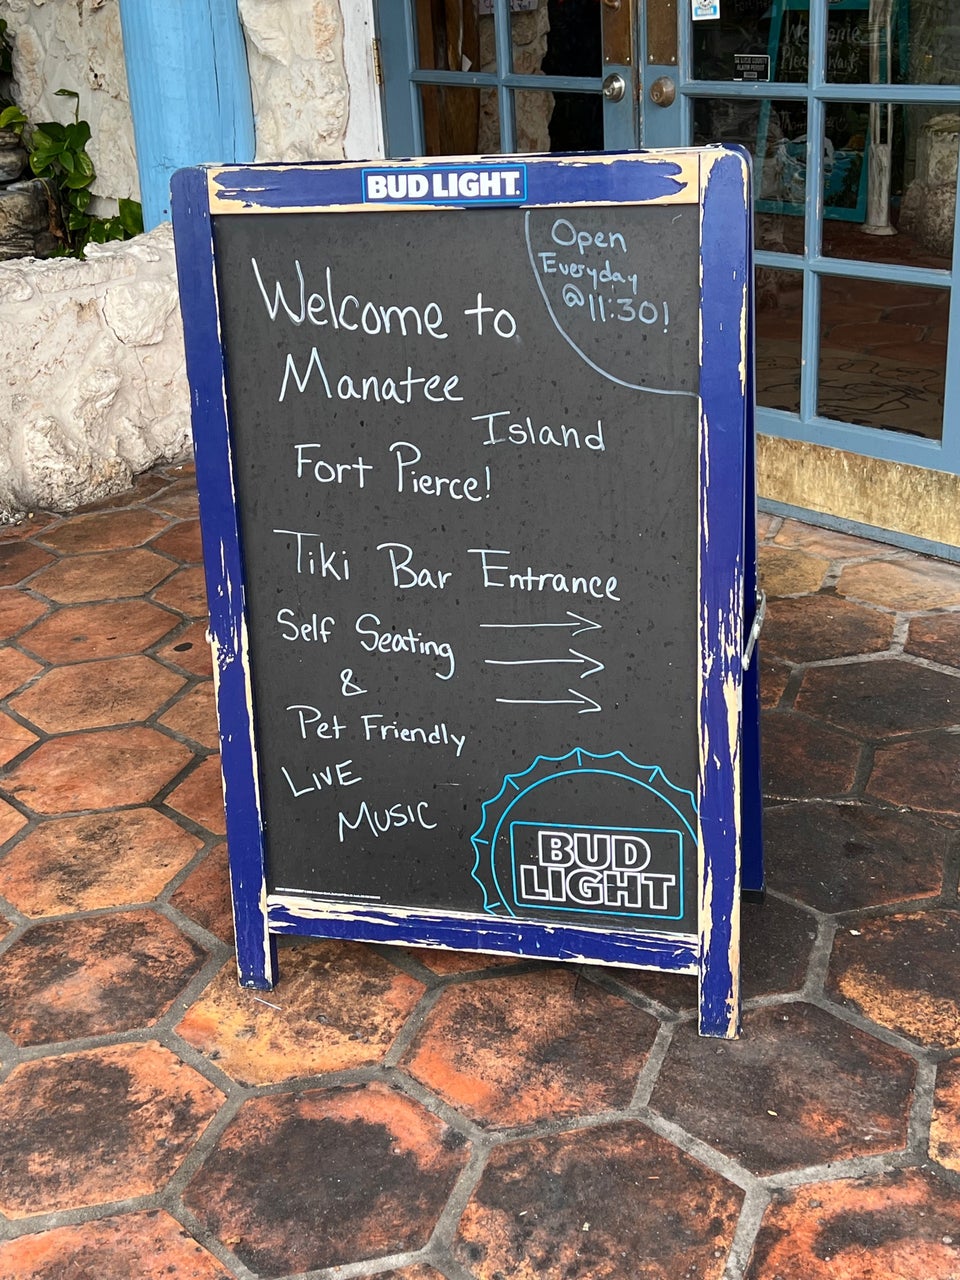 BUD LIGHT.
Open
Everyday
@11:30!
Welcome to
Manatee
Island
Fort Pierce!
Tiki Bar Entrance
Self Seating
&
Pet Friendly
LIVE
MUSIC
BUD
LIGHT
Welcome
Please Wait